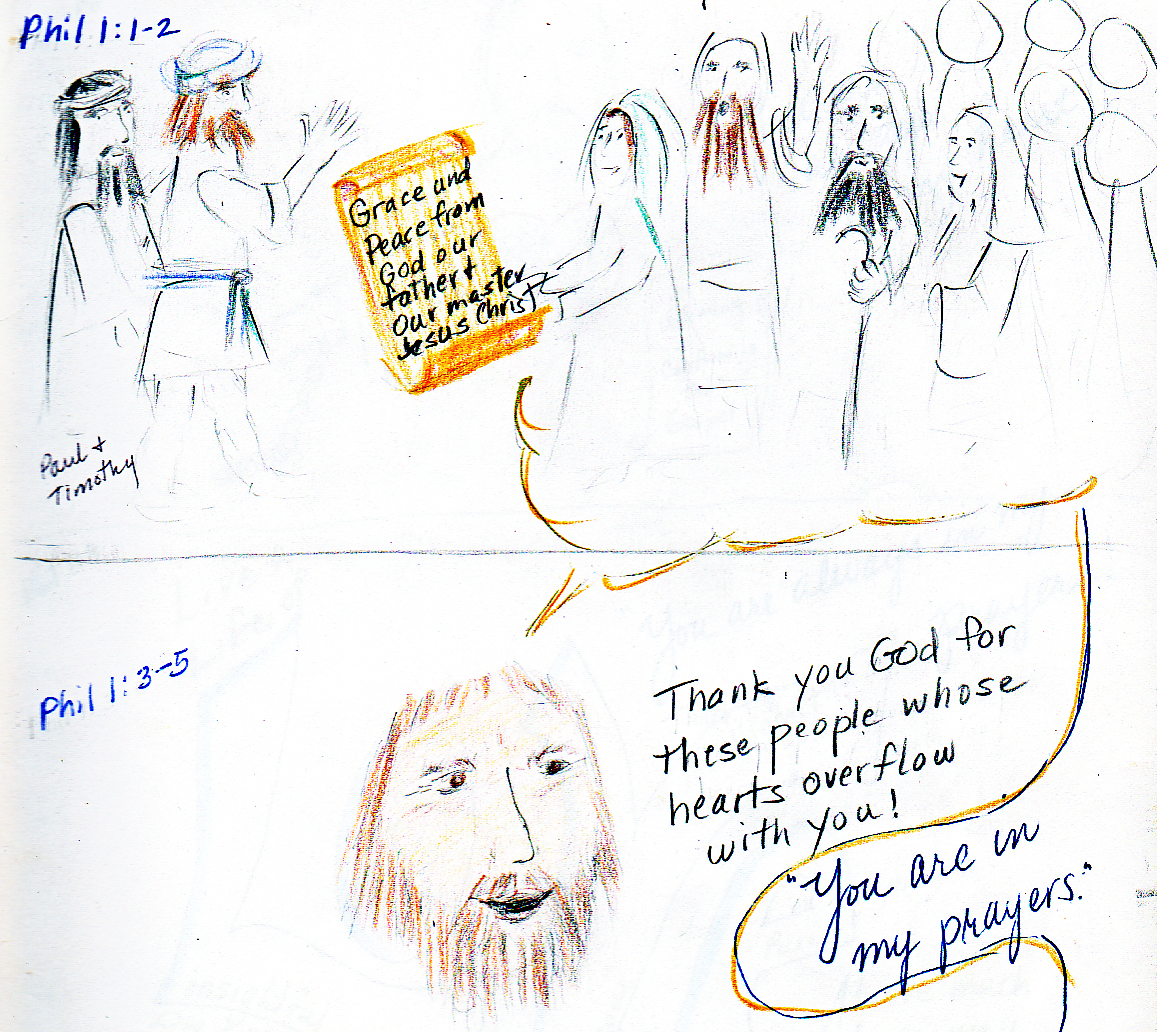 Phil 1:1-2
Grace and
Peace from
God our
father +
our master
Jesus Christ
Paul +
Timothy
Phil 1:3-5
Thank you God for
these people whose
hearts overflow
with you!
"You are in
my prayers."